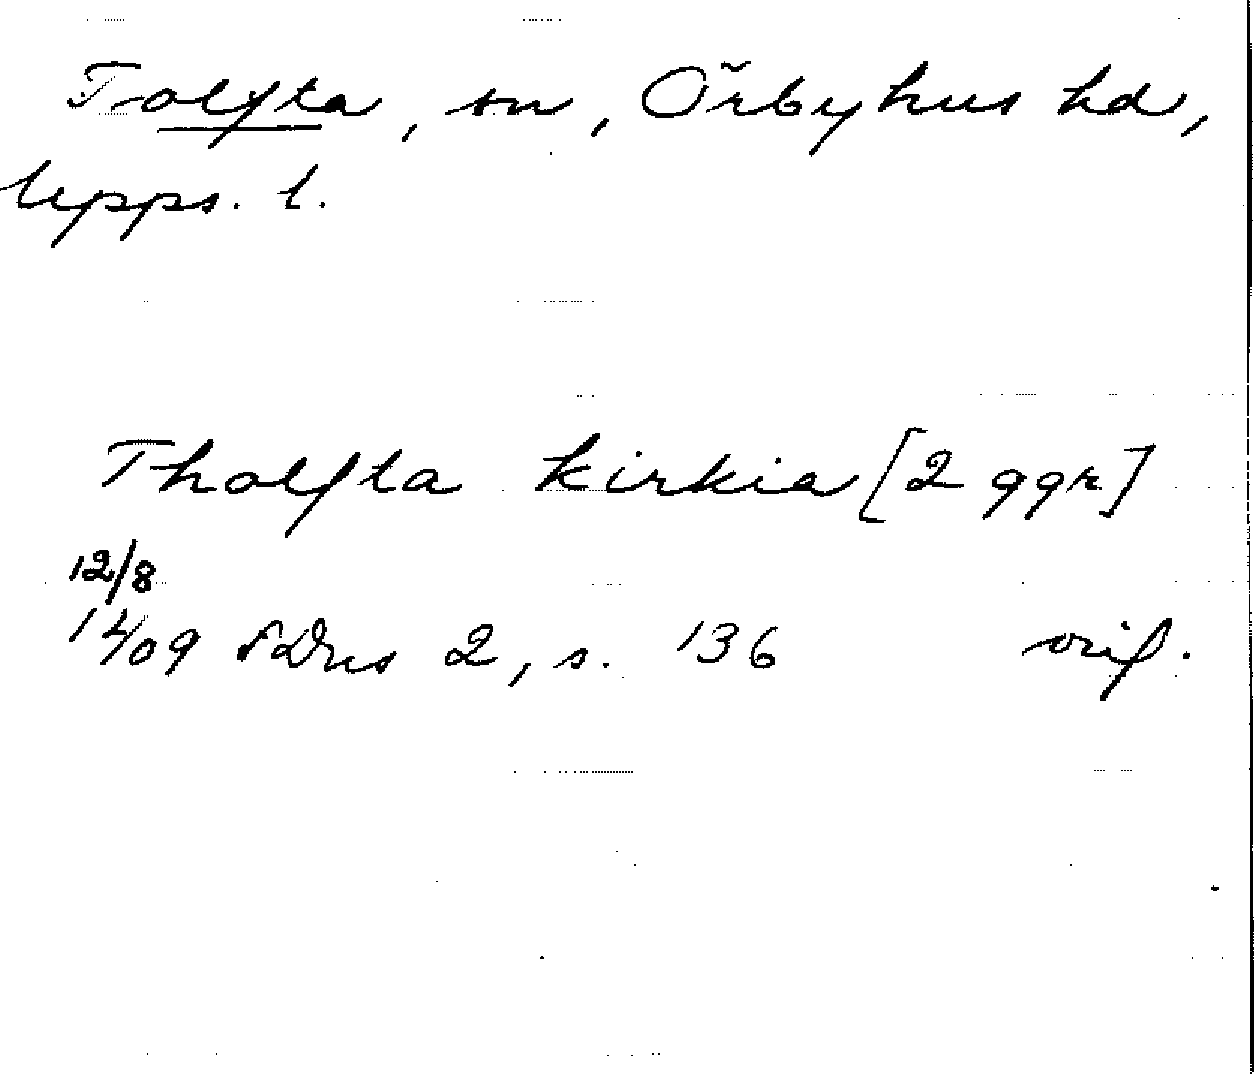 Tolfta, sn, Örbyhus hd,
Upps. l.
Tholfta kirkia [2 ggr]
12/8
1409 SDns 2, s. 136 orif.